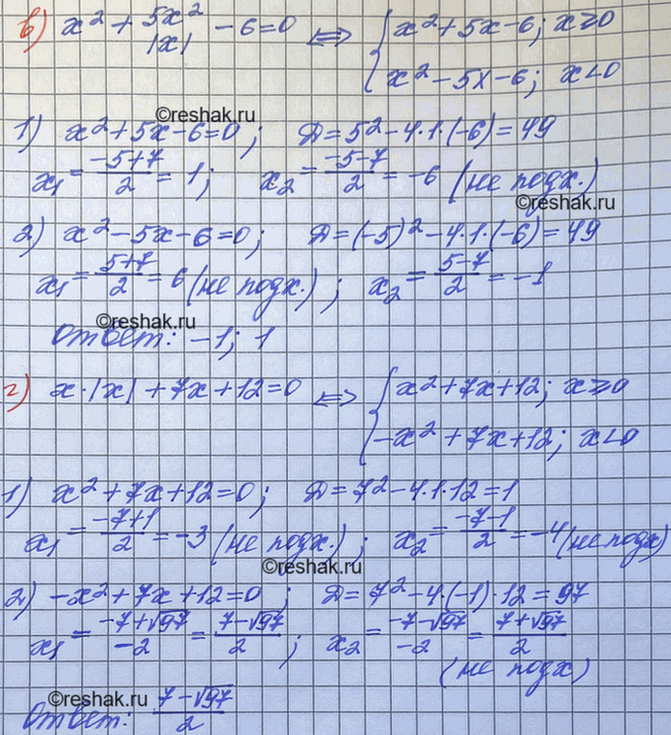 в) x² + 5x²/|x| - 6 = 0 ⟺ { x² + 5x - 6; x ≥ 0
x² - 5x - 6; x < 0
©reshak.ru
1) x² + 5x - 6 = 0; D = 5² - 4·1·(-6) = 49
x₁ = (-5+7)/2 = 1; x₂ = (-5-7)/2 = -6 (не подх.)
©reshak.ru
2) x² - 5x - 6 = 0; D = (-5)² - 4·1·(-6) = 49
x₁ = (5+7)/2 = 6 (не подх.); x₂ = (5-7)/2 = -1
©reshak.ru
Ответ: -1; 1
г) x·|x| + 7x + 12 = 0 ⟺ { x² + 7x + 12; x ≥ 0
-x² + 7x + 12; x < 0
1) x² + 7x + 12 = 0; D = 7² - 4·1·12 = 1
x₁ = (-7+1)/2 = -3 (не подх.); x₂ = (-7-1)/2 = -4 (не подх)
©reshak.ru
2) -x² + 7x + 12 = 0; D = 7² - 4·(-1)·12 = 97
x₁ = (-7+√97)/-2 = (7-√97)/2; x₂ = (-7-√97)/-2 = (7+√97)/2
(не подх)
©reshak.ru
Ответ: (7-√97)/2